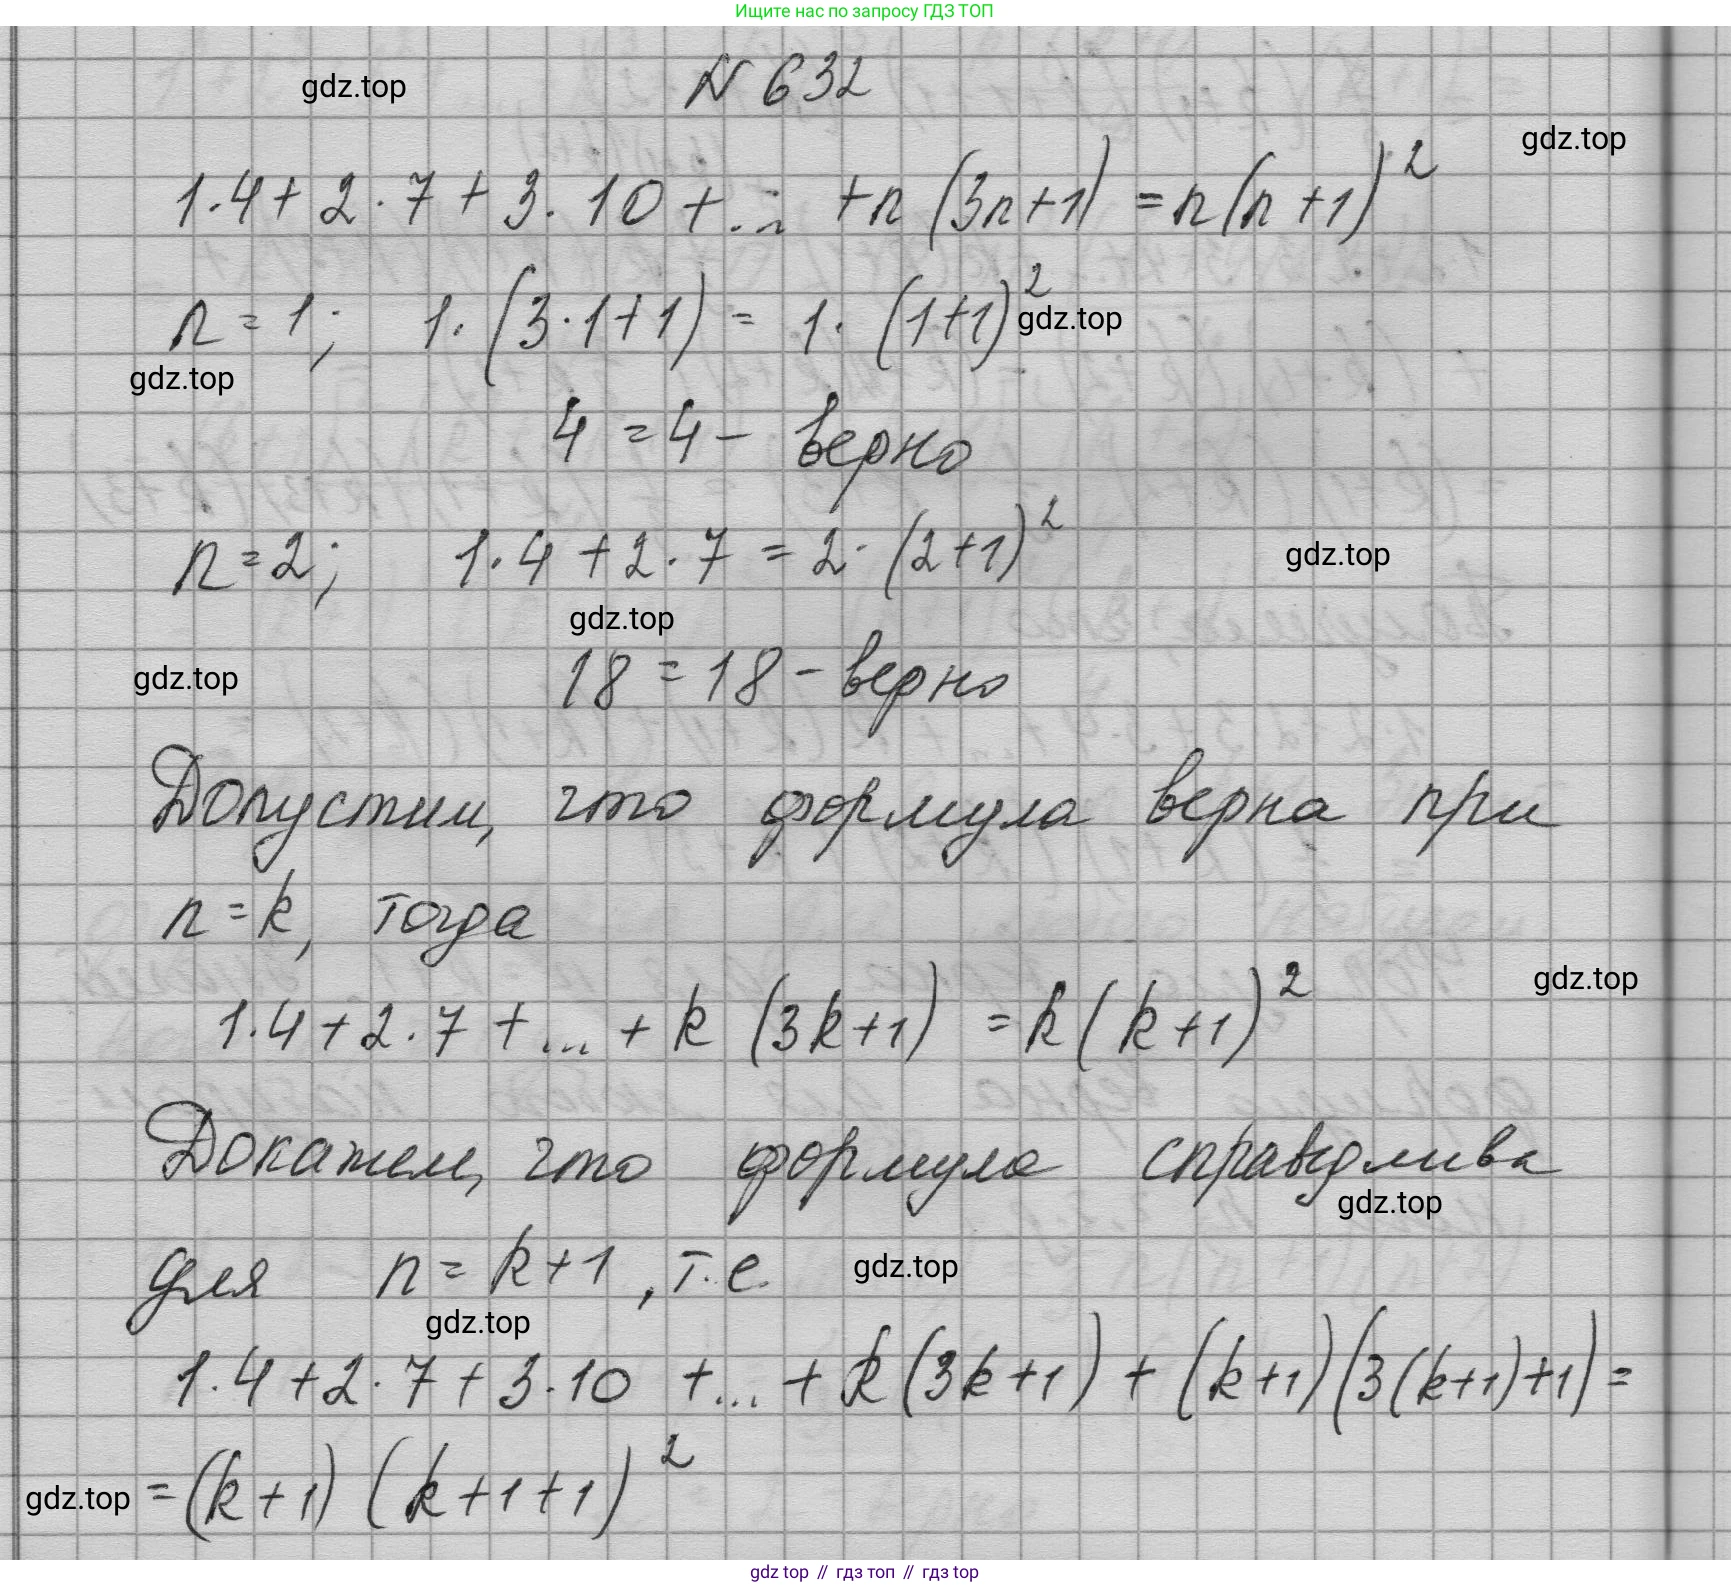 Ищите нас по запросу ГДЗ ТОП
N 632
gdz.top
gdz.top
1·4+2·7+3·10+... +n(3n+1)=n(n+1)²
n=1; 1·(3·1+1)=1·(1+1)²
gdz.top
gdz.top
4=4- верно
n=2; 1·4+2·7=2·(2+1)²
gdz.top
gdz.top
18=18-верно
gdz.top
Допустим, что формула верна при
n=k, тогда
1·4+2·7+...+k(3k+1)=k(k+1)²
gdz.top
Докажем, что формула справедлива
gdz.top
для n=k+1, т.е.
gdz.top
gdz.top
1·4+2·7+3·10+...+k(3k+1)+(k+1)(3(k+1)+1)=
=(k+1)(k+1+1)²
gdz.top
gdz top // гдз топ // gdz top